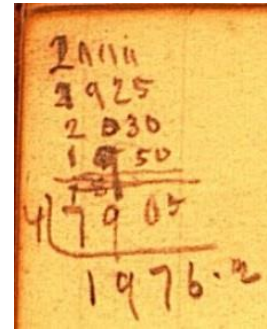 1925
2030
1950
4 7905
1976.2